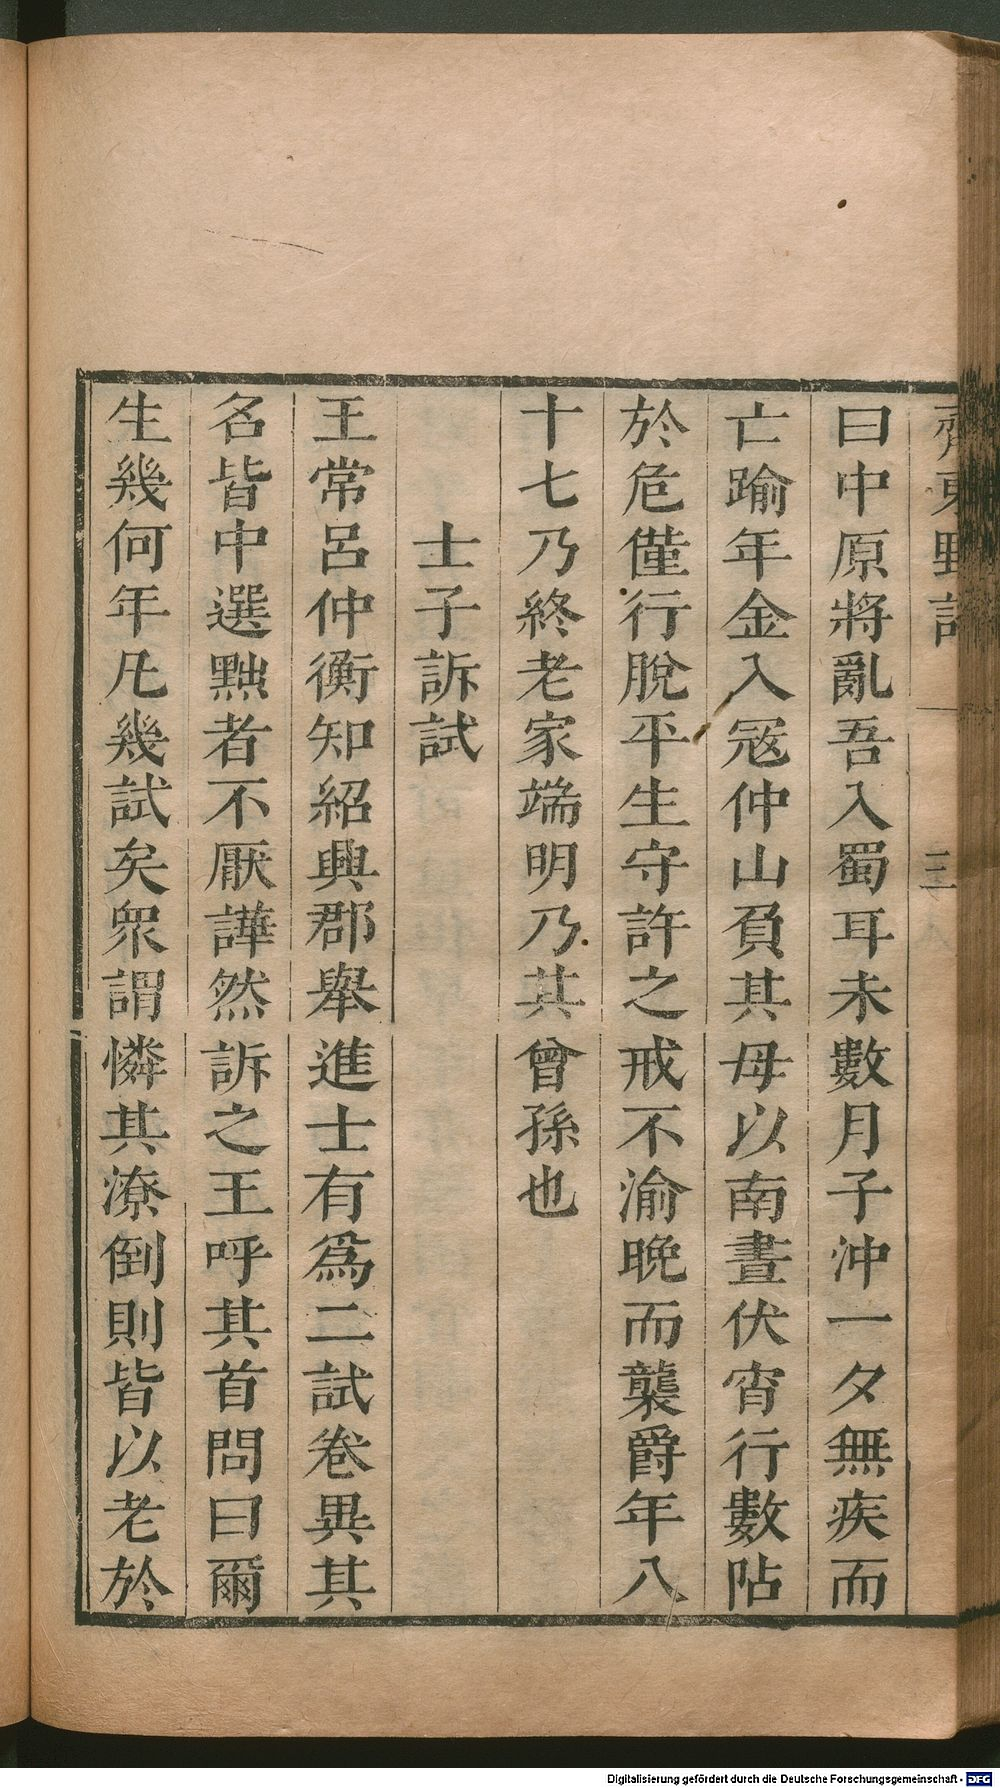 齊東野語
三
曰中原將亂吾入蜀耳未數月子沖一夕無疾而
亡踰年金入冦仲山負其母以南晝伏宵行數阽
於危僅行脫平生守許之戒不渝晚而襲爵年八
十七乃終老家端明乃其曾孫也
士子訴試
王常呂仲衡知紹興郡舉進士有爲二試卷異其
名皆中選黜者不厭譁然訴之王呼其首問曰爾
生幾何年凡幾試矣衆謂憐其潦倒則皆以老於
Digitalisierung gefördert durch die Deutsche Forschungsgemeinschaft - DFG